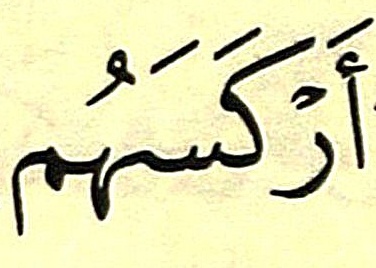 أَرْكَسَهُم